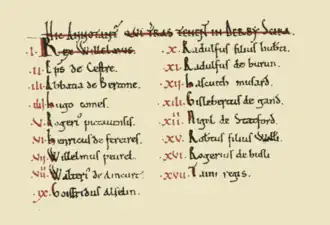 HIC ANNOTANT̃ TENENT̃ IN DERBY SCIRE
.I. Rex Willelmus.
.II. Ep̃s de Cestre.
.III. Abbatia de Bertone.
.IIII. Hugo comes.
.V. Rogeri9 pictauensis.
.VI. Henricus de fereires.
.VII. Willelmus peurel.
.VIII. Walteri9 de aincurt.
.IX. Goisfridus alselin.
.X. Radulfus filius hub̃ti.
.XI. Radulfus de burun.
.XII. hascuith musard.
.XIII. Gislebertus de gand.
.XIIII. Nigel de Statford.
.XV. Robtus filius Willi.
.XVI. Rogerius de busli
.XVII. Taini regis.